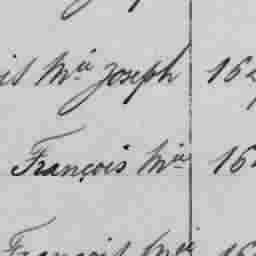 Mie Joseph 16
François Mie 16
François Mie 16